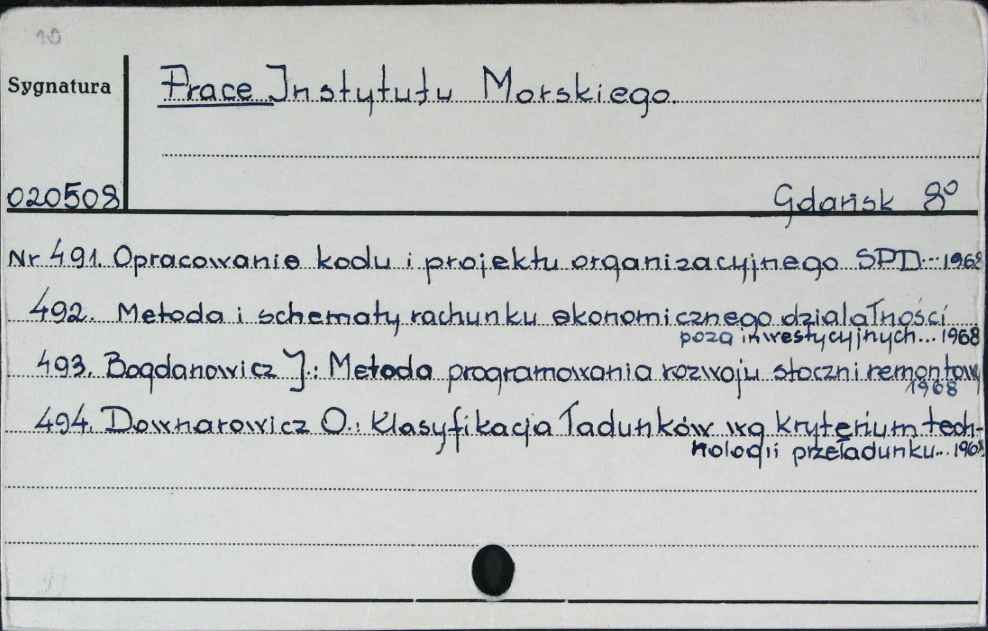 10
Sygnatura
Prace Instytutu Morskiego.
020508
Gdańsk 8°
Nr 491. Opracowanie kodu i projektu organizacyjnego SPD... 1968
492. Metoda i schematy rachunku ekonomicznego działalności
poza inwestycyjnych... 1968
493. Bogdanowicz J.: Metoda programowania rozwoju stoczni remontow
1968
494. Downarowicz O.: Klasyfikacja ładunków wg kryterium tech-
nologii przeładunku... 1968